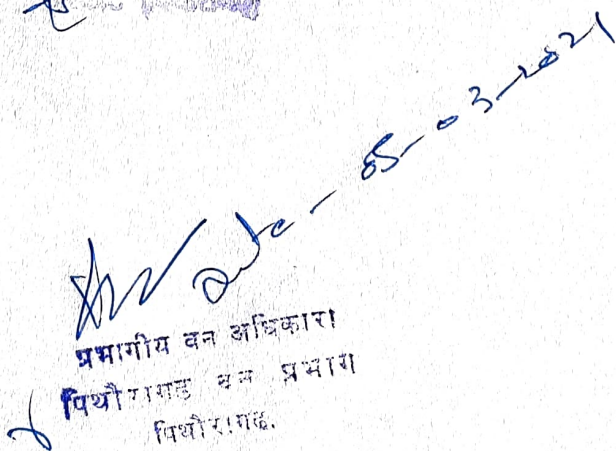 Date - 05-03-2021
प्रभागीय वन अधिकारी
पिथौरागढ़ वन प्रभाग
पिथौरागढ़.